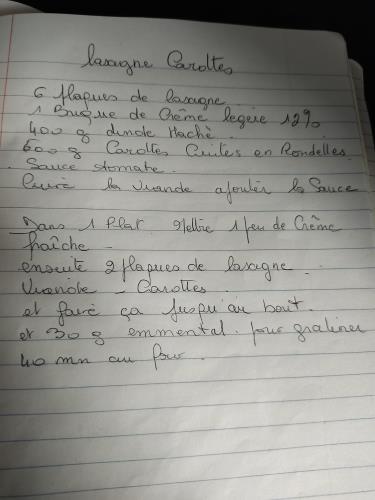 lasagne Carottes
6 plaques de lasagne
1 Brique de Crème legère 12%
400 g dinde Haché.
600 g Carottes Cuites en Rondelles.
Sauce tomate.
Cuire la viande ajouter la Sauce
Dans 1 Plat. Mettre 1 peu de Crème
fraîche -
ensuite 2 plaques de lasagne.
Viande - Carottes.
et faire ça jusqu'au bout.
et 30 g emmental. pour gratiner
40 mn au four.